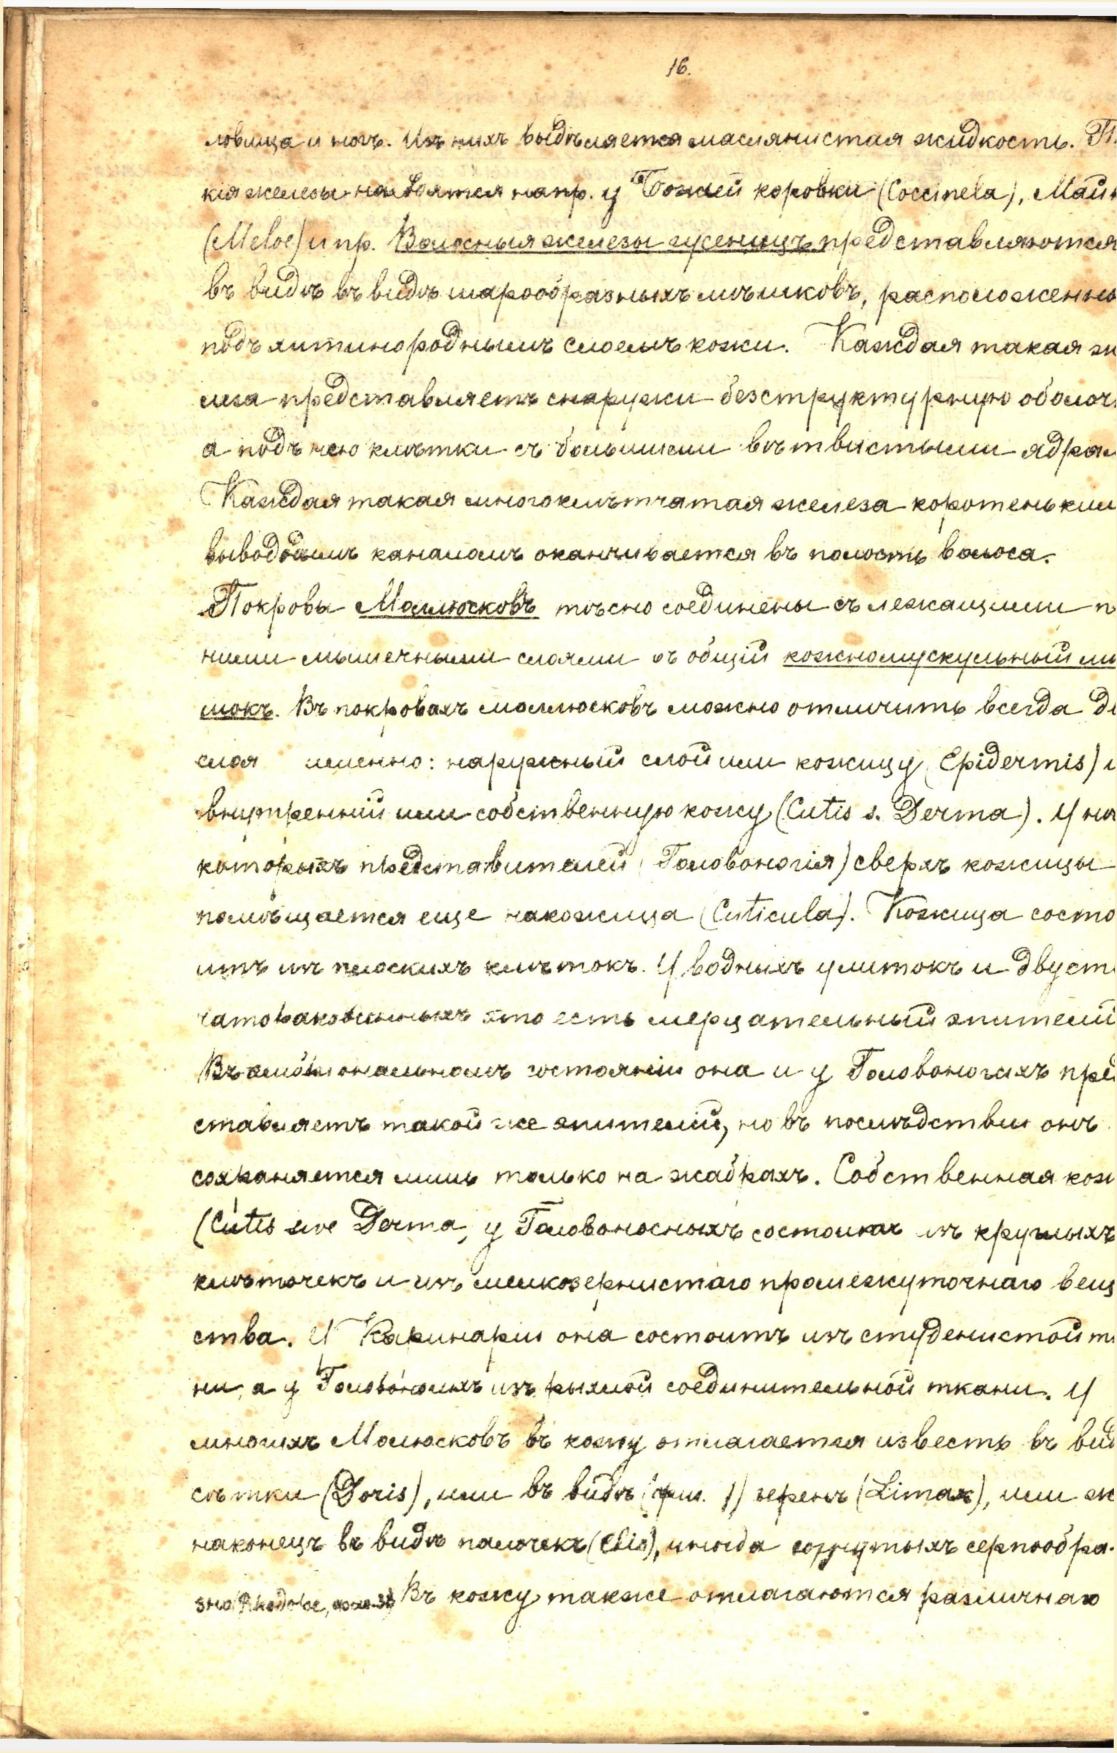 16.
ловища и ногъ. Изъ нихъ выдѣляется маслянистая жидкость. Та
кія железы находятся напр. у Божьей коровки (Coccinela), Май
(Meloe) и пр. Волосныя железы гусеницъ представляются
въ видѣ въ видѣ шарообразныхъ мѣшковъ, расположенны
подъ хитинороднымъ слоемъ кожи. Каждая такая же
леза представляетъ снаружи безструктурную оболоч
а подъ нею клѣтки съ большими вѣтвистыми ядра
Каждая такая многоклѣтчатая железа коротеньким
выводнымъ каналомъ оканчивается въ полость волоса.
Покровы Моллюсковъ тѣсно соединены съ лежащими п
ними мышечными слоями въ общій кожномускульный мѣ
шокъ. Въ покровахъ моллюсковъ можно отличить всегда д
слоя именно: наружный слой или кожицу (Epidermis) и
внутренній или собственную кожу (Cutis s. Derma). У нѣ
которыхъ представителей (Головоногія) сверхъ кожицы
помѣщается еще накожица (Cuticula). Кожица состо
итъ изъ плоскихъ клѣтокъ. У водныхъ улитокъ и двуст
чатораковинныхъ это есть мерцательный эпителій
Въ эмбріональномъ состояніи она и у Головоногихъ пред
ставляетъ такой же эпителій, но въ послѣдствіи онъ
сохраняется лишь только на жабрахъ. Собственная кож
(Cutis sive Derma, у Головоносныхъ состоитъ изъ круглыхъ
клѣточекъ и изъ мелкозернистаго промежуточнаго вещ
ства. У Каринаріи она состоитъ изъ студенистой т
ни, а у Головоногихъ изъ рыхлой соединительной ткани. У
многихъ Молюсковъ въ кожу отлагается известь въ вид
сѣтки (Doris), или въ видѣ зеренъ (Limax), или
наконецъ въ видѣ палочекъ, иногда согнутыхъ серпообра-
зно Въ кожу также отлагаются различнаго